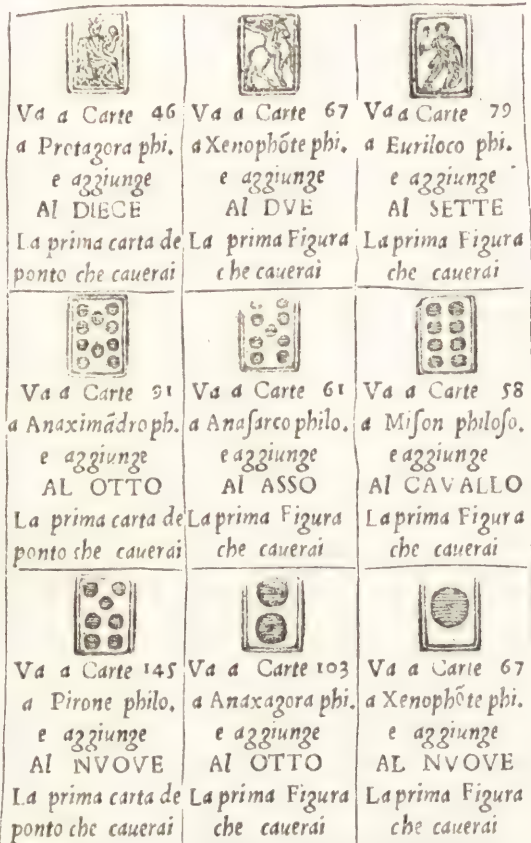 Va a Carte 46
a Protagora phi.
e aggiunge
Al DIECE
La prima carta de
ponto che cauerai
Va a Carte 67
a Xenophõte phi.
e aggiunge
Al DVE
La prima Figura
che cauerai
Va a Carte 79
a Euriloco phi.
e aggiunge
Al SETTE
La prima Figura
che cauerai
Va a Carte 91
a Anaximãdro ph.
e aggiunge
AL OTTO
La prima carta de
ponto che cauerai
Va a Carte 61
a Anaſarco philo.
e aggiunge
Al ASSO
La prima Figura
che cauerai
Va a Carte 58
a Miſon philoſo.
e aggiunge
Al CAVALLO
La prima Figura
che cauerai
Va a Carte 145
a Pirone philo.
e aggiunge
Al NVOVE
La prima carta de
ponto che cauerai
Va a Carte 103
a Anaxagora phi.
e aggiunge
Al OTTO
La prima Figura
che cauerai
Va a Carte 67
a Xenophõte phi.
e aggiunge
AL NVOVE
La prima Figura
che cauerai